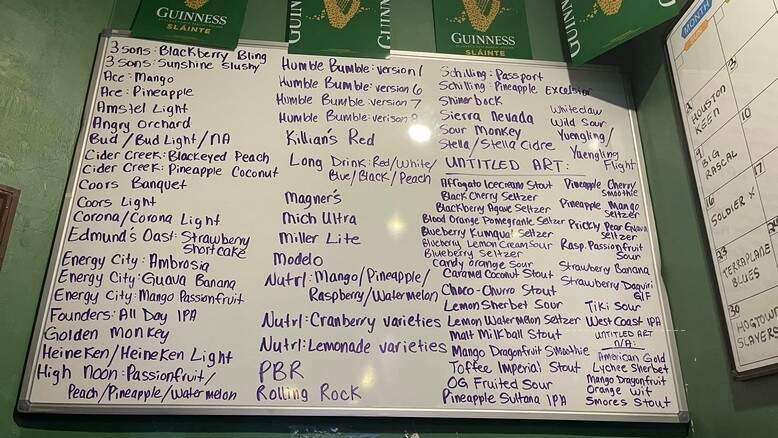 GUINNESS
SLÁINTE
GUINNESS
SLÁINTE
GUINN
MONTH
3 sons: Blackberry Bling
3 sons: Sunshine Slushy
Ace: Mango
Ace: Pineapple
Amstel Light
Angry Orchard
Bud / Bud Light / NA
Cider Creek: Blackeyed Peach
Cider Creek: Pineapple Coconut
Coors Banquet
Coors Light
Corona/Corona Light
Edmund's Oast: Strawberry
Shortcake
Energy City: Ambrosia
Energy City: Guava Banana
Energy City: Mango Passionfruit
Founders: All Day IPA
Golden Monkey
Heineken/Heineken Light
High Noon: Passionfruit/
Peach/Pineapple/Watermelon
Humble Bumble: version 1
Humble Bumble: version 6
Humble Bumble: version 7
Humble Bumble: verison
Killian's Red
Long Drink: Red/White/
Blue/Black/Peach
Magner's
Mich Ultra
Miller Lite
Modelo
Nutrl: Mango/Pineapple/
Raspberry/Watermelon
Nutrl: Cranberry varieties
Nutrl: Lemonade varieties
PBR
Rolling Rock
Schilling: Passport
Schilling: Pineapple Excelsior
Shiner bock
Sierra Nevada
Sour Monkey
Stella/Stella Cidre
Whiteclaw
Wild Sour
Yuengling/
Yuengling
Flight
UNTITLED ART:
Affogato Icecream Stout
Black Cherry Seltzer
Blackberry Agave Seltzer
Blood Orange Pomegranite Seltzer
Blueberry Kumquat Seltzer
Blueberry Lemon Cream Sour
Blueberry Seltzer
Candy orange Sour
Caramel Coconut Stout
Choco-Churro Stout
Lemon Sherbet Sour
Lemon Watermelon Seltzer
Malt Milkball Stout
Mango Dragonfruit Smoothie
Toffee Imperial Stout
OG Fruited Sour
Pineapple Sultana IPA
Pineapple Cherry
Smoothie
Pineapple Mango
Seltzer
Prickly Pear Guava
Seltzer
Rasp. Passionfruit
Sour
Strawberry Banana
Strawberry Daquiri
G/F
Tiki Sour
West Coast IPA
UNTITLED ART
N/A:
American Gold
Lychee Sherbet
Mango Dragonfruit
Orange Wit
Smores Stout
2
HOUSTON
KEEN
3
9
BIG
RASCAL
10
16
SOLDIER X
17
23
TERRAPLANE
BLUES
30
HOGTOWN
SLAYERS